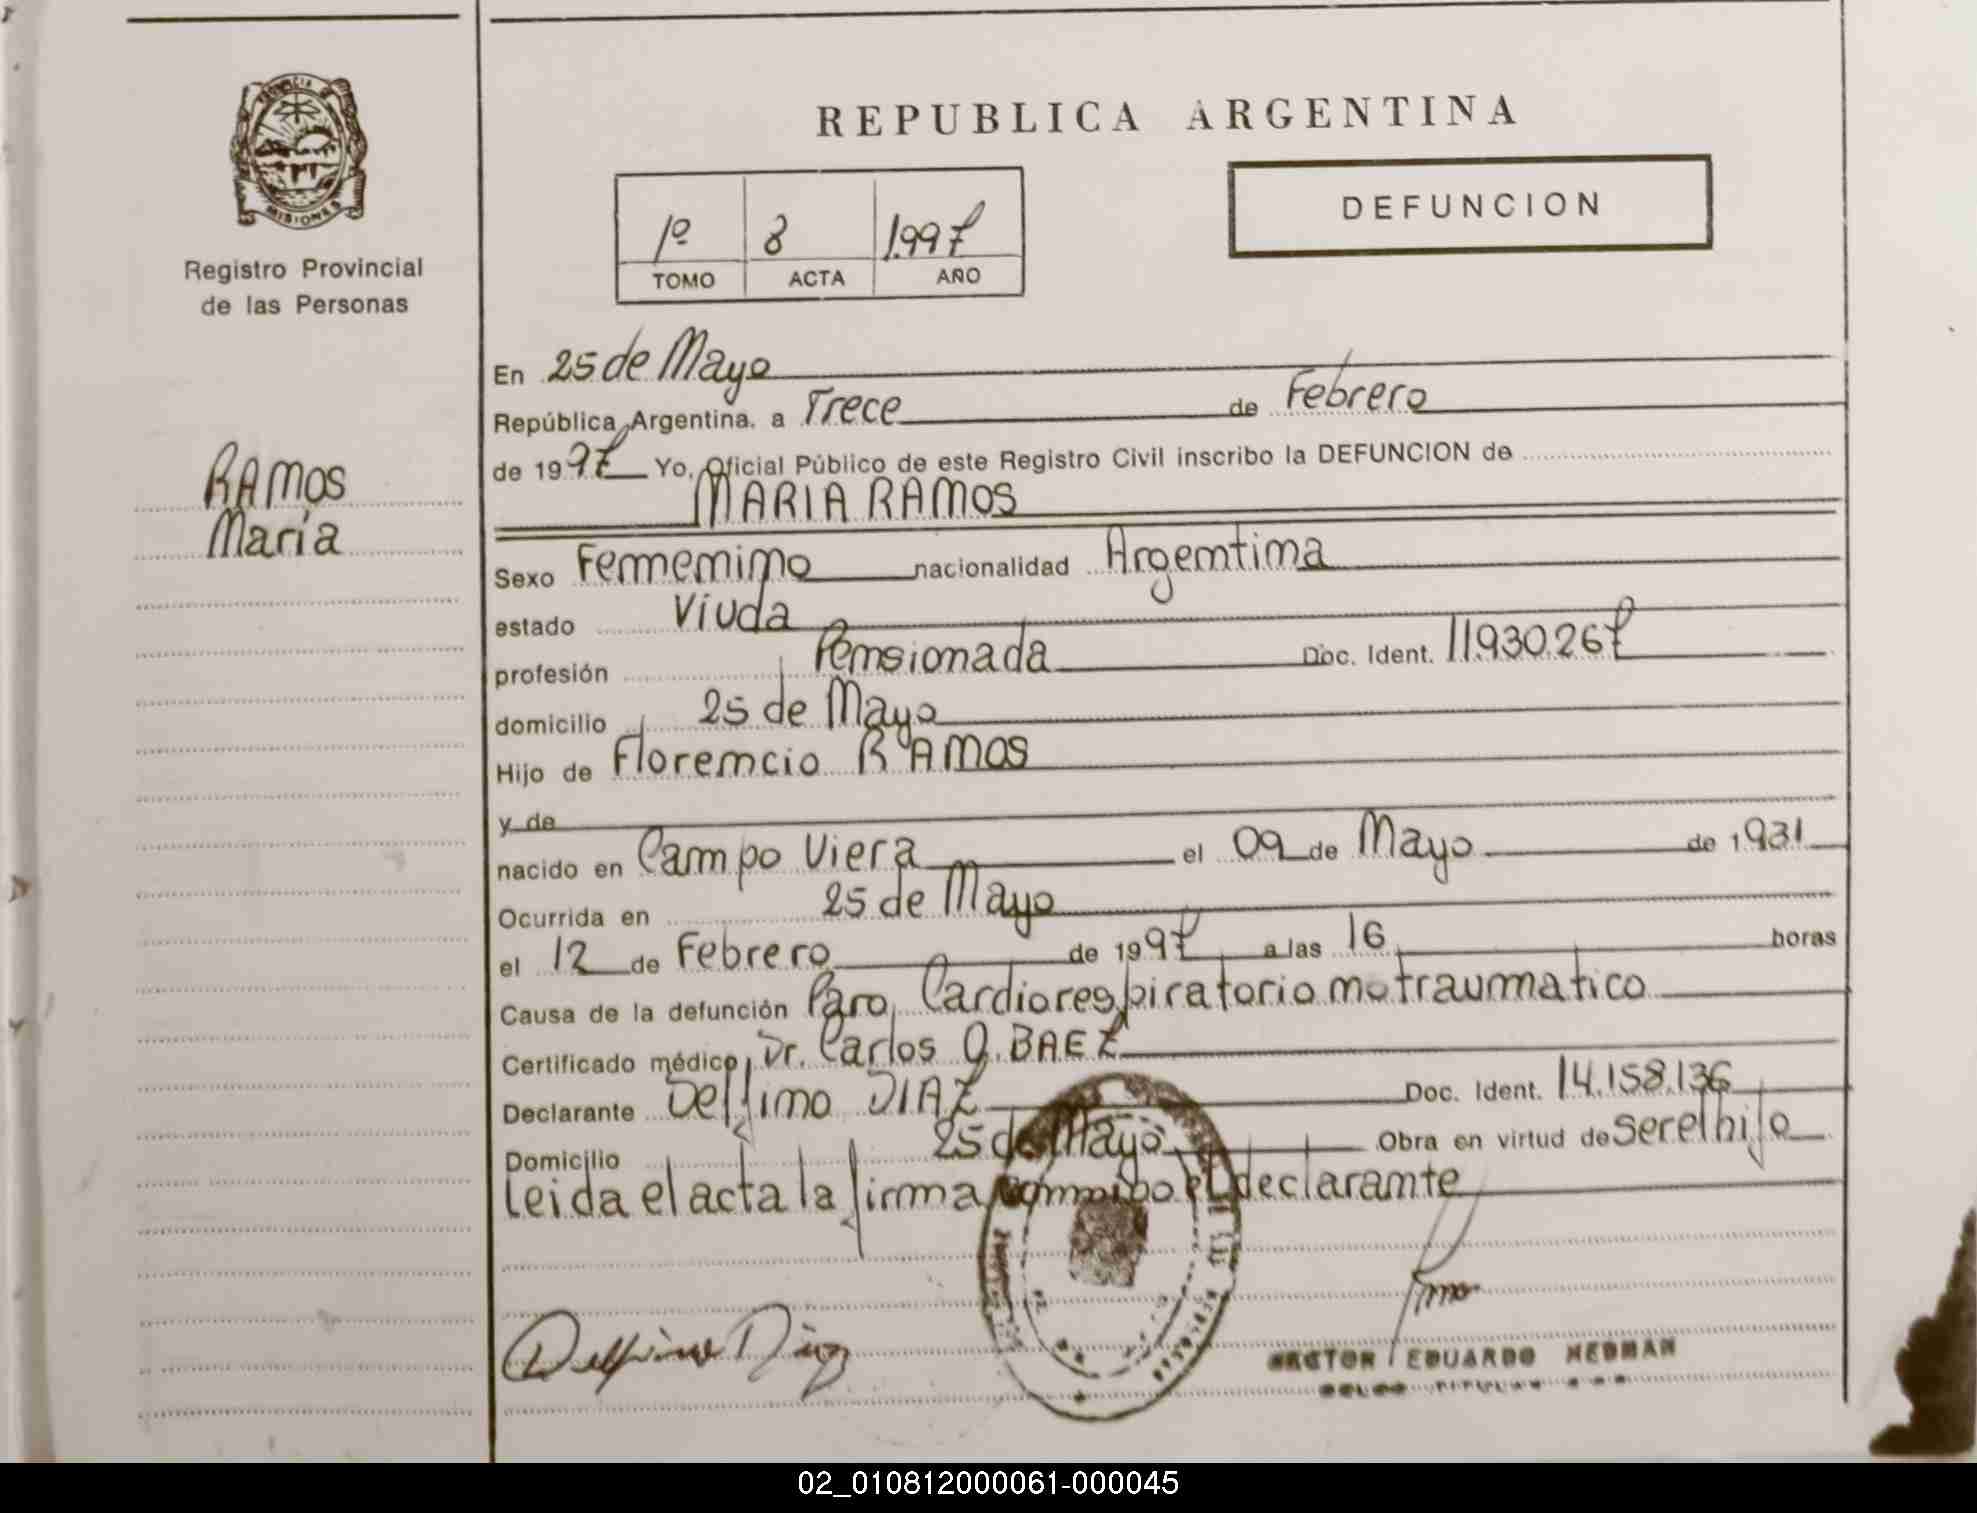 PROVINCIA D
MISIONES
Registro Provincial
de las Personas
RAMOS
María
REPUBLICA ARGENTINA
1º 8 1.997
TOMO ACTA AÑO
DEFUNCION
En 25 de Mayo
República Argentina, a Trece de Febrero
de 1997 Yo, Oficial Público de este Registro Civil inscribo la DEFUNCION de
MARIA RAMOS
Sexo Femenino nacionalidad Argentina
estado Viuda
profesión Pensionada Doc. Ident. 11.930.267
domicilio 25 de Mayo
Hijo de Florencio RAMOS
y de
nacido en Campo Viera el 09 de Mayo de 1931
Ocurrida en 25 de Mayo
el 12 de Febrero de 1997 a las 16 horas
Causa de la defunción Paro Cardiorespiratorio no traumatico
Certificado médico Dr. Carlos Q. BAEZ
Declarante Delfino DIAZ Doc. Ident. 14.158.136
Domicilio 25 de Mayo Obra en virtud de ser el hijo
leida el acta la firma conmigo el declarante
Delfino Diaz
HECTOR EDUARDO
TITULAR
02_010812000061-000045